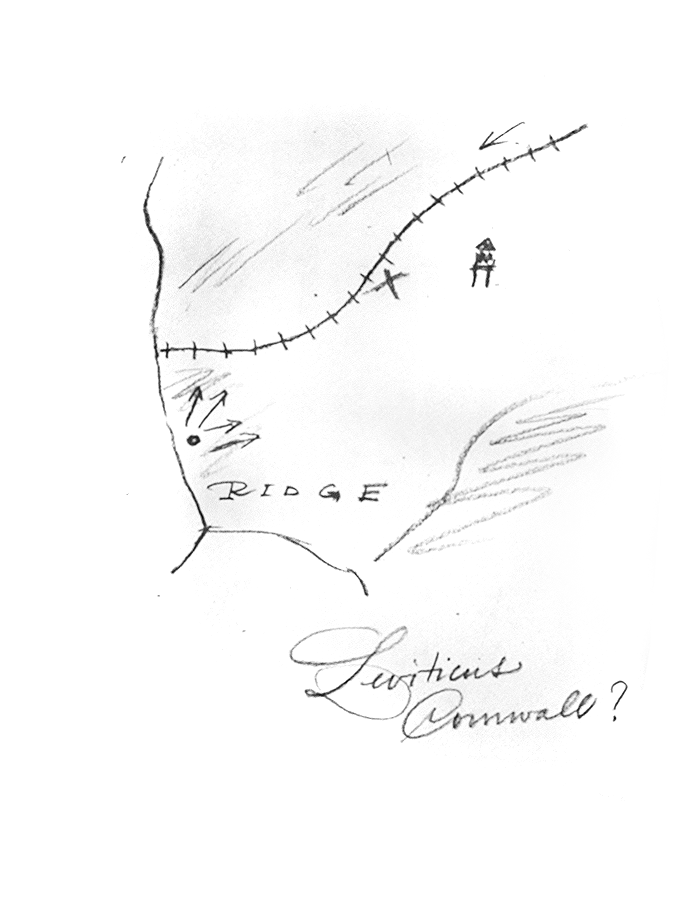 RIDGE
Leviticus
Cornwall?